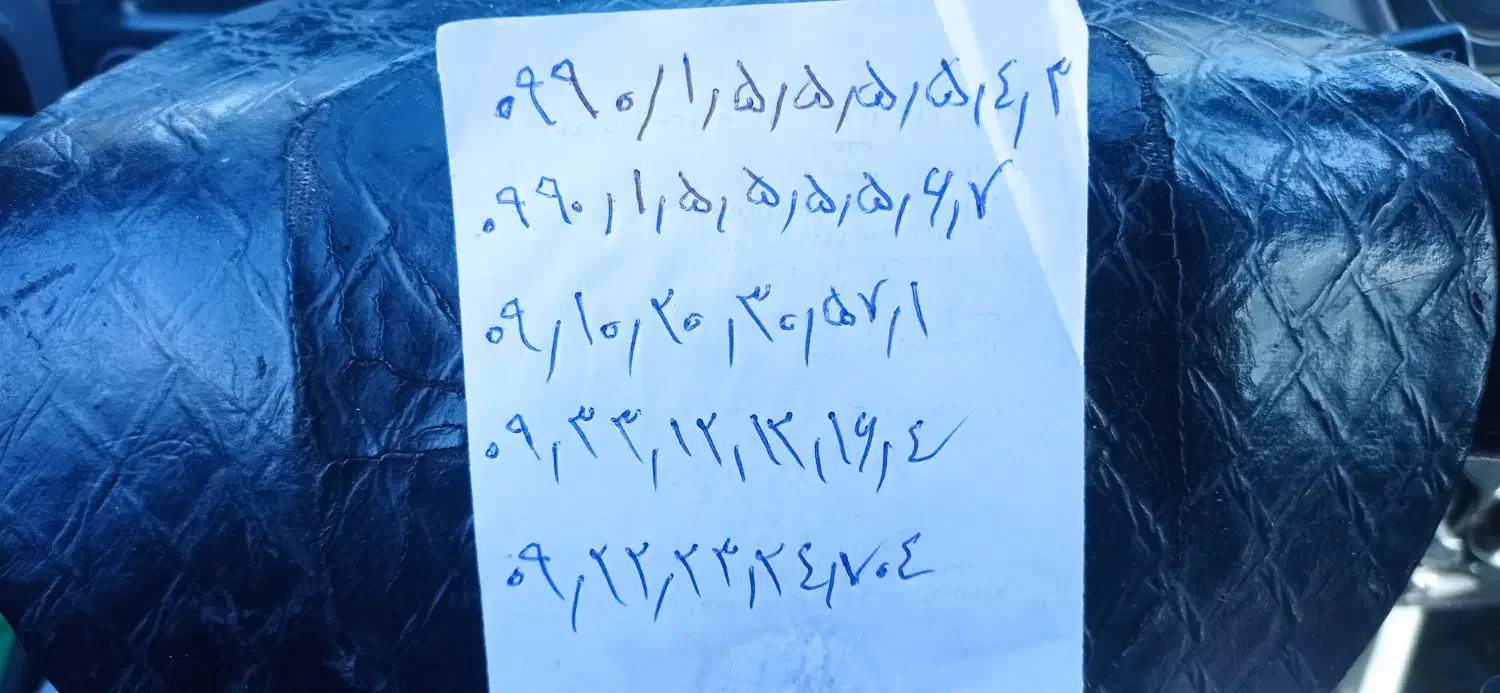 ۰۹۹۰/۱,۵,۵,۵,۵,٤,۳
۰۹۹۰,۱,۵,۵,۵,۵,۶,۷
۰۹,۱۰,۲۰,۳۰,۵۷,۱
۰۹,۳۳,۱۲,۱۳,۱۶,٤
۰۹,۲۲,۲۳,۲٤,۷۰٤